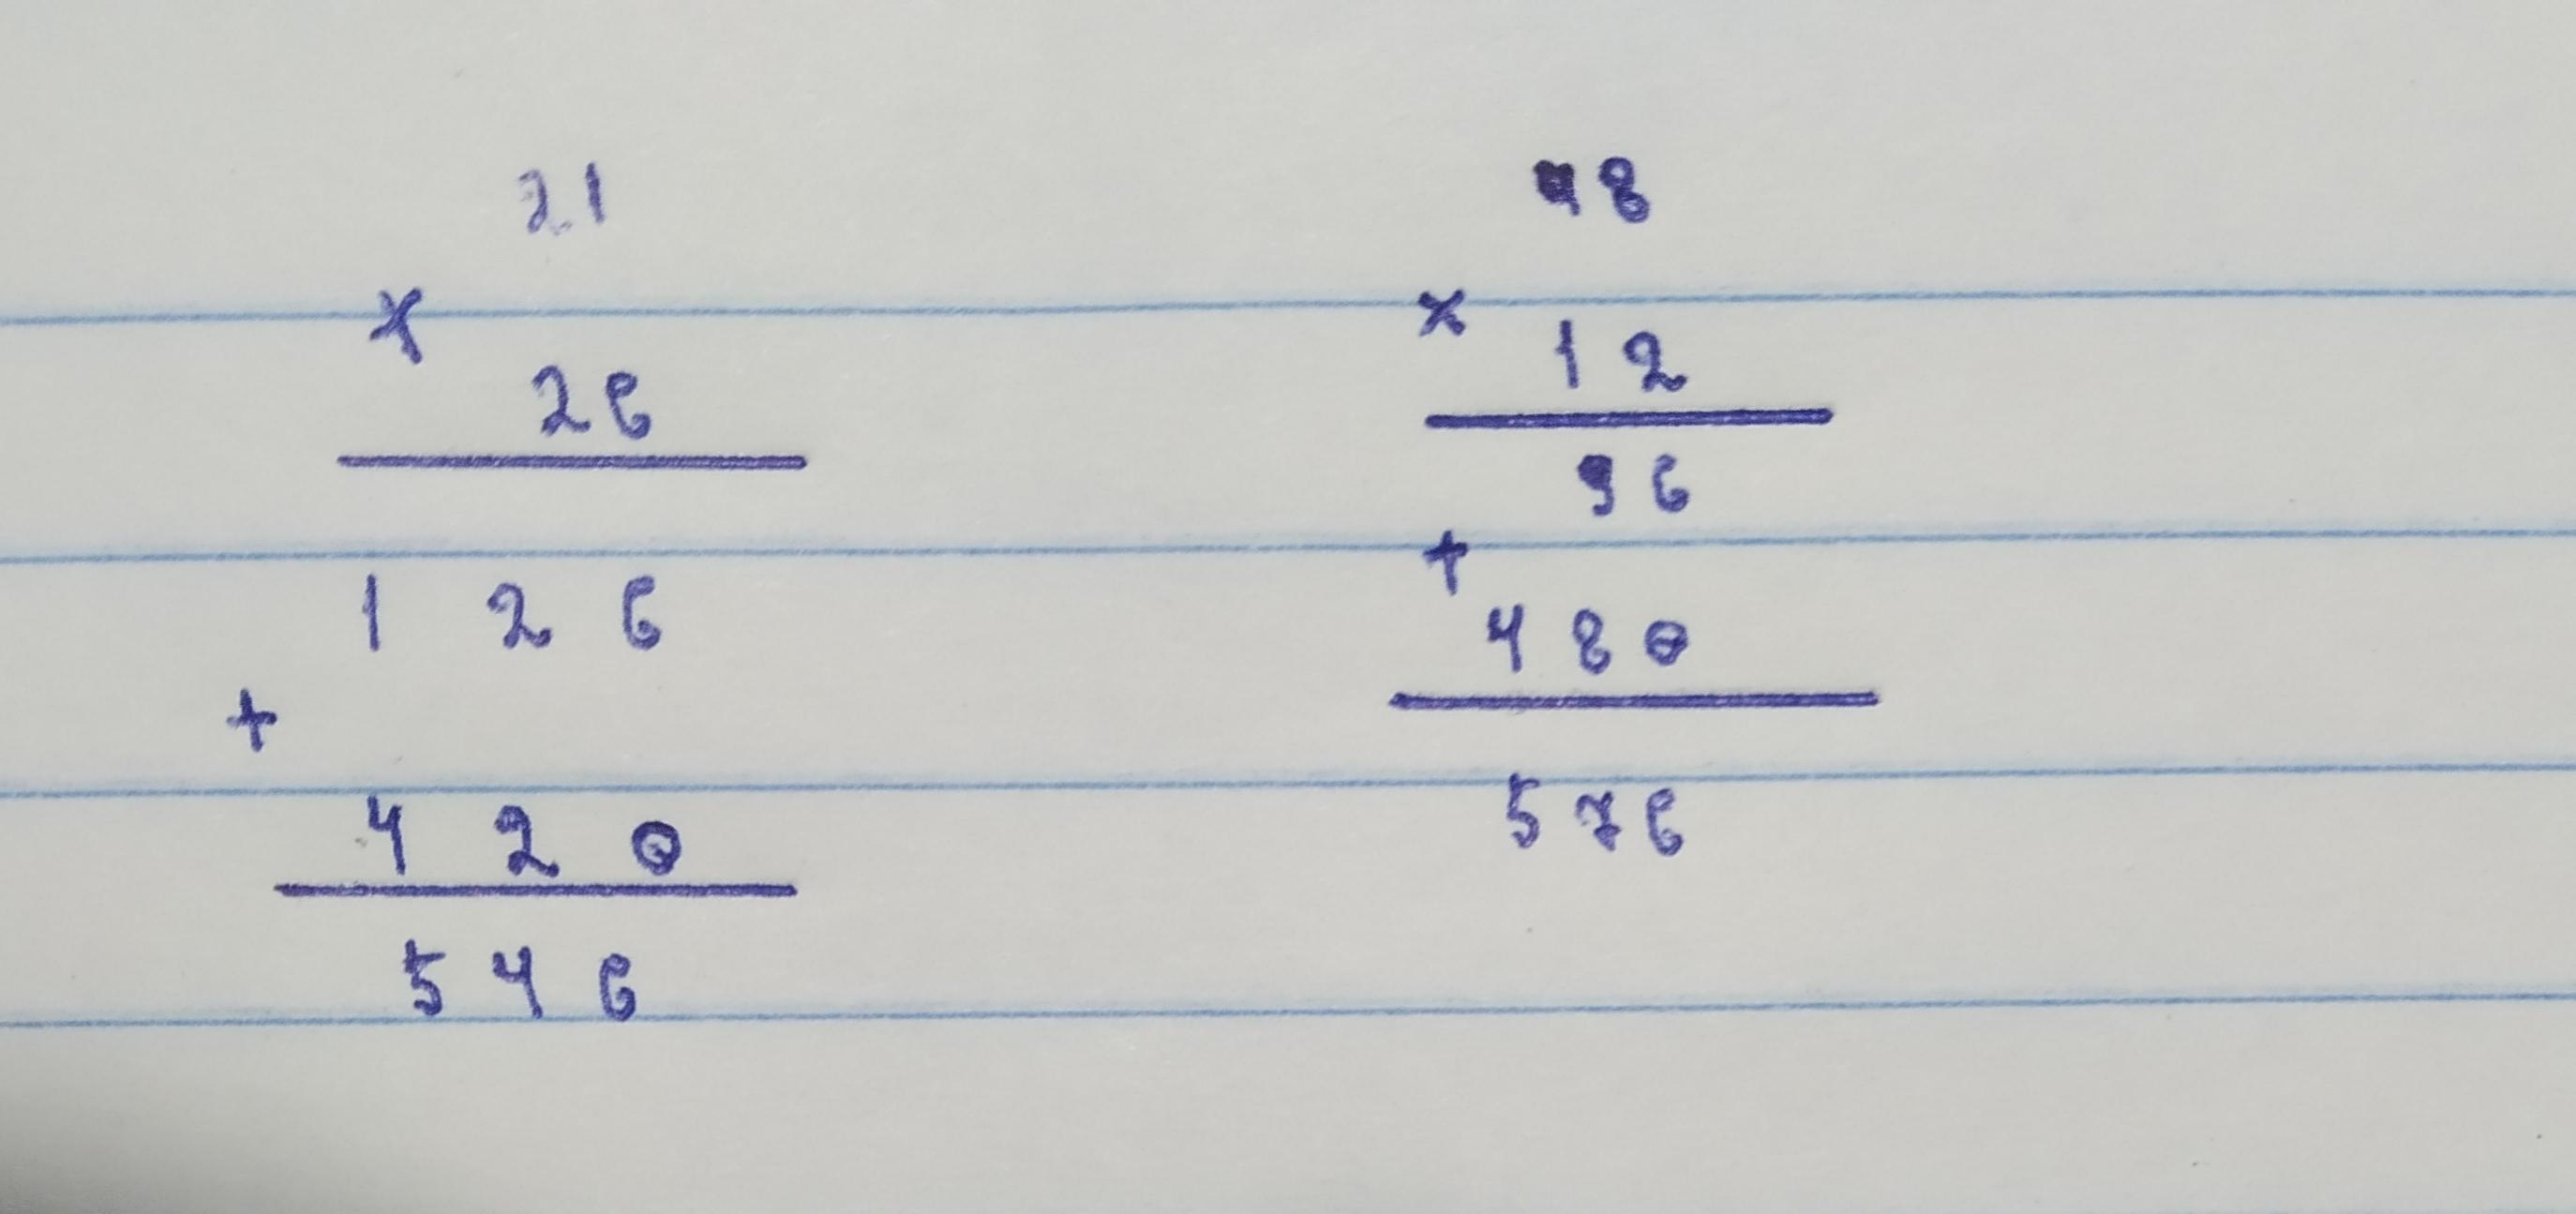 21
×
26
126
+
420
546
48
×
12
96
+
480
576